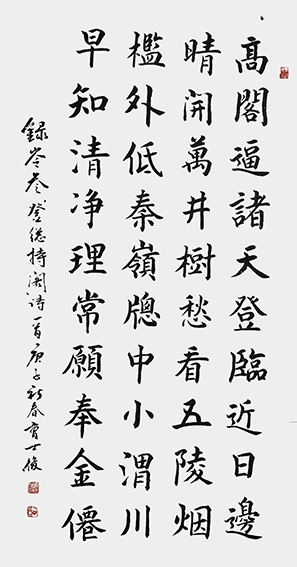 高閣逼諸天登臨近日邊
晴開萬井樹愁看五陵烟
檻外低秦嶺牕中小渭川
早知清净理常願奉金僊
録岑参登総持阁诗一首庚子新春曹士俊